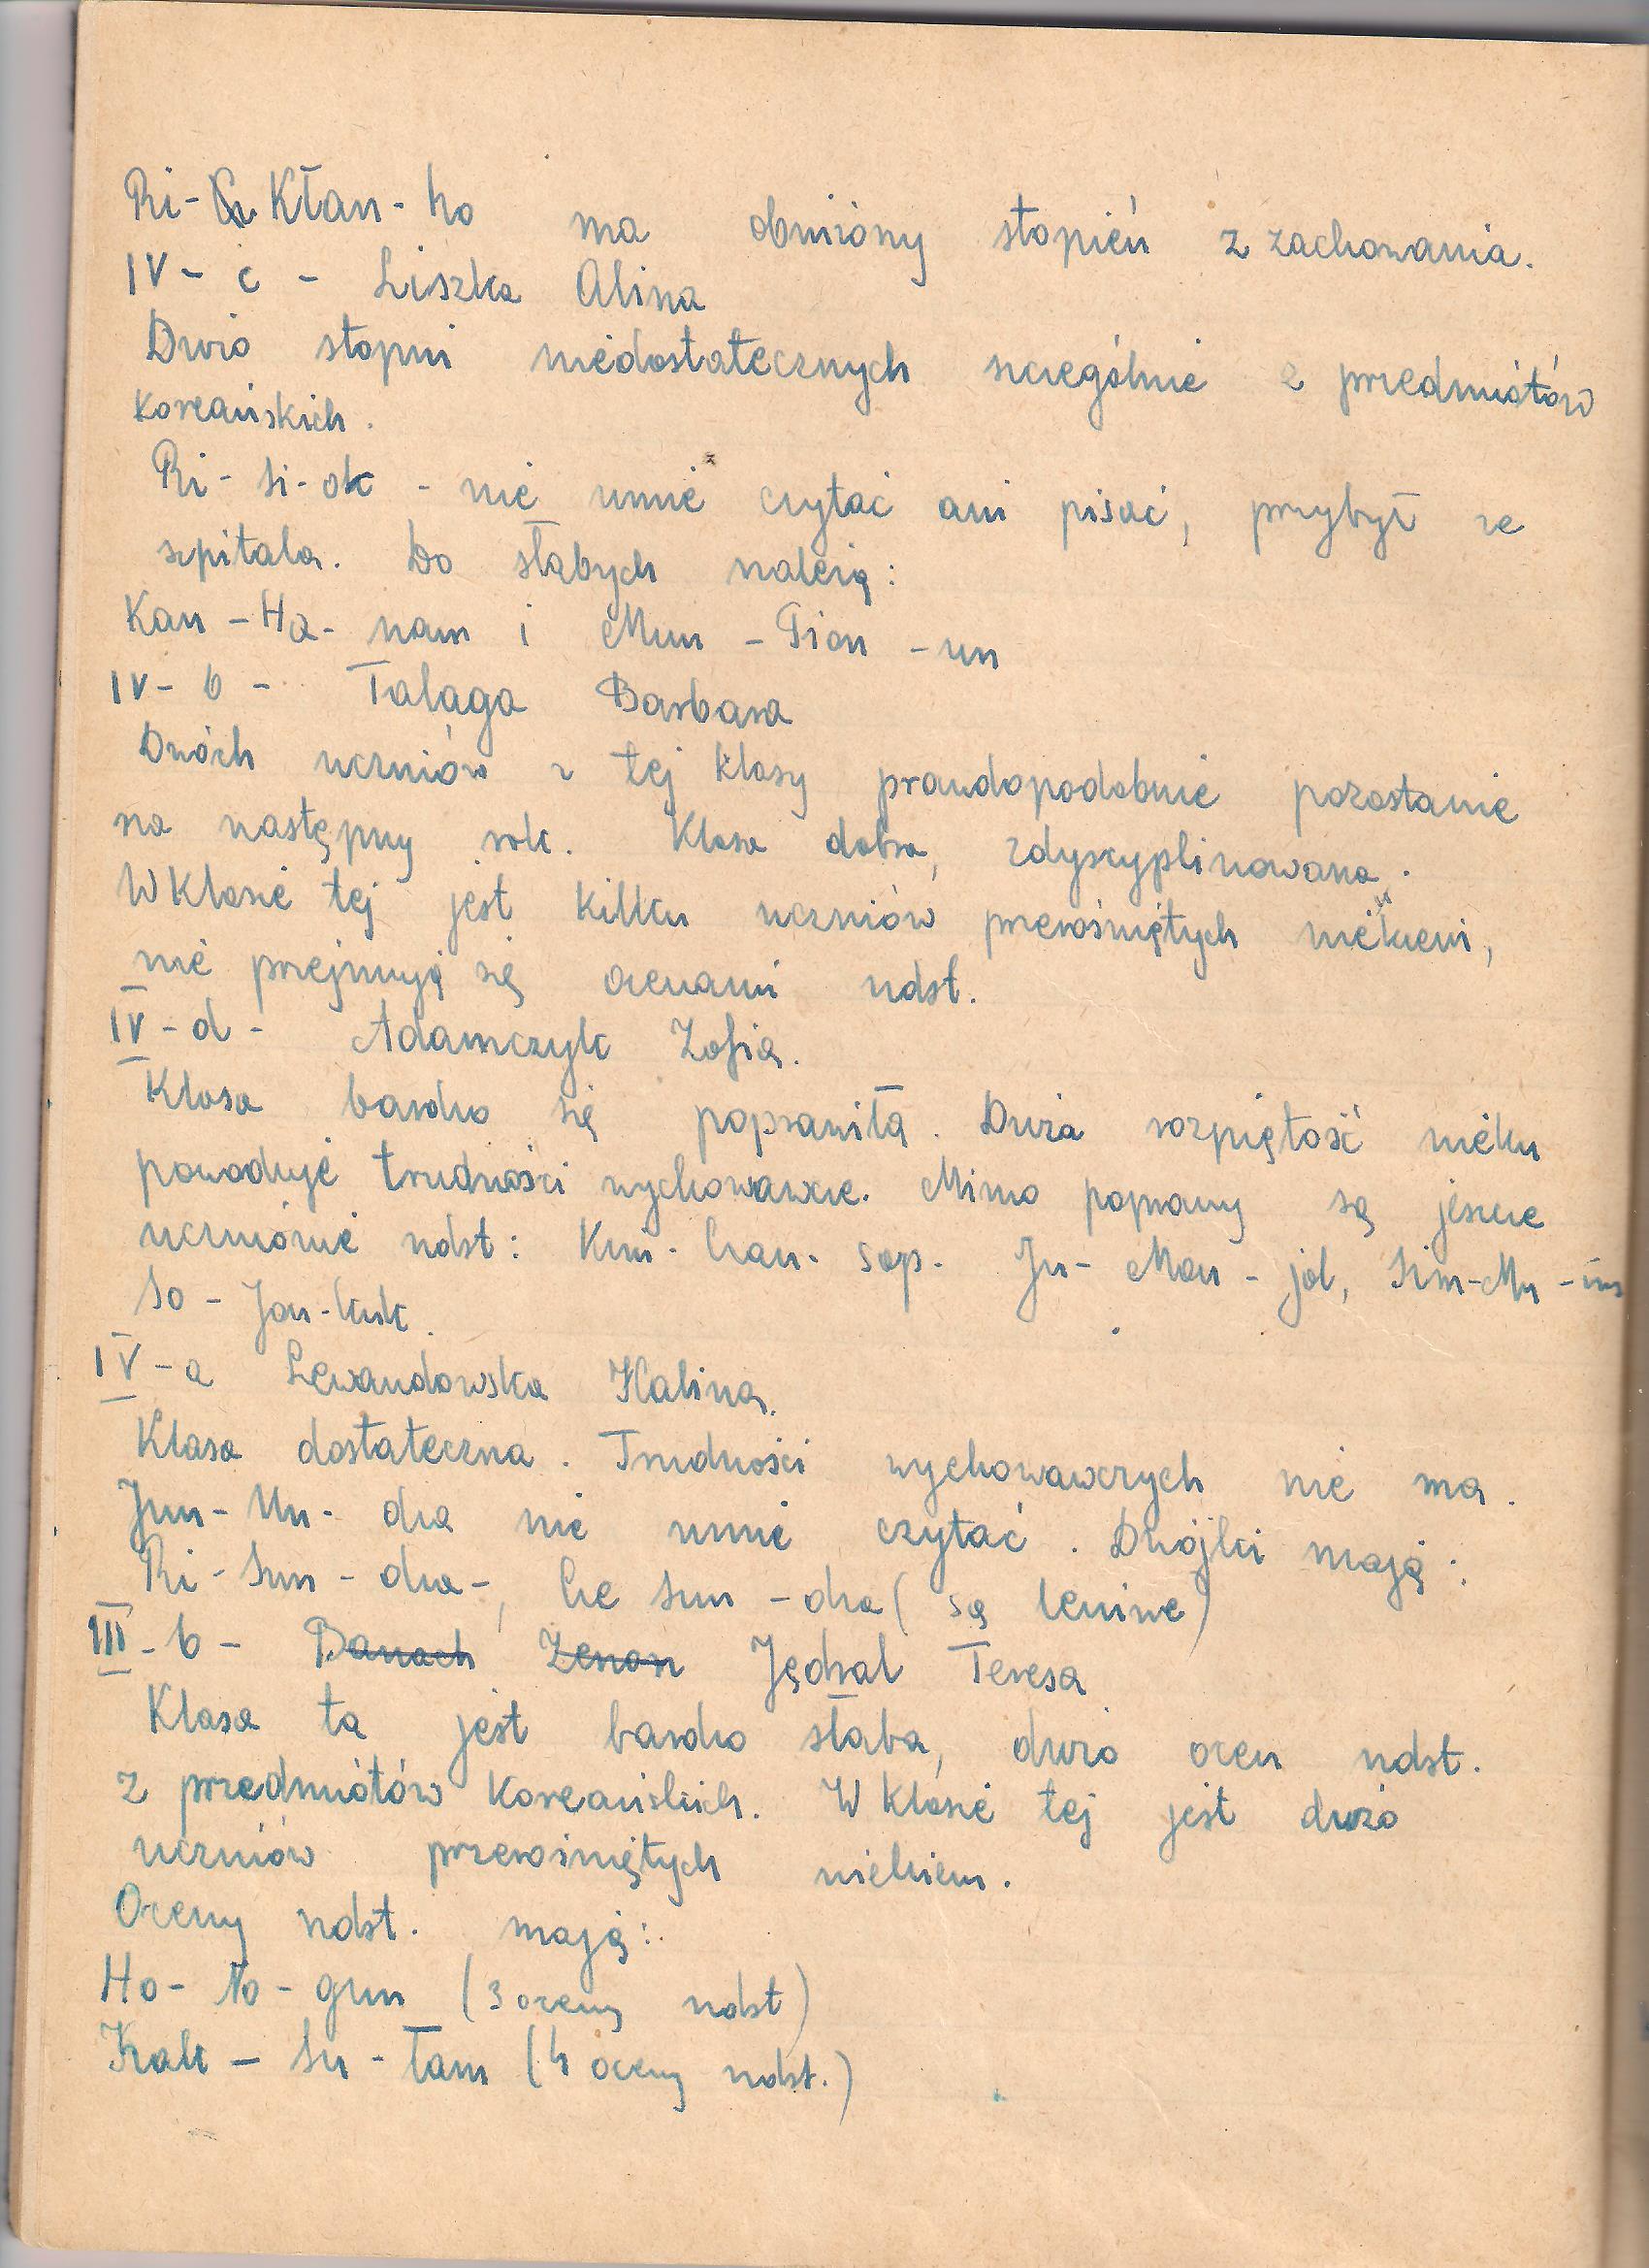 Ri- Kłan-ho ma obniżony stopień z zachowania.
IV- c - Liszka Alina
Dużo stopni niedostatecznych szczególnie z przedmiotów
koreańskich.
Ri-Si-ok - nie umie czytać ani pisać, przybył ze
szpitala. Do słabych należą:
Kan-Ha-nam i Mun-Pion-un
IV- b - Talaga Barbara
Dwóch uczniów z tej klasy prawdopodobnie pozostanie
na następny rok. Klasa dobra, zdyscyplinowana.
W klasie tej jest kilku uczniów przerośniętych wiekiem,
nie przejmują się ocenami ndst.
IV-d- Adamczyk Zofia.
Klasa bardzo się poprawiła. Duża rozpiętość wieku
powoduje trudności wychowawcze. Mimo poprawy są jeszcze
uczniowie ndst: Kim-Czan-Sop. Ju-Man-jol, Sim-Mu-
So-Jan-kuk.
IV-a Lewandowska Halina.
Klasa dostateczna. Trudności wychowawczych nie ma.
Jun-Un-dza nie umie czytać. Dwójki mają:
Ri-Sun-dza-, Cze Sun-dza (są leniwe)
III-b- Banach Zenon Jędral Teresa
Klasa ta jest bardzo słaba, dużo ocen ndst.
z przedmiotów koreańskich. W klasie tej jest dużo
uczniów przerośniętych wiekiem.
Oceny ndst. mają:
Ho-No-gun (3 oceny ndst)
Kak-Su-Tam (4 oceny ndst.)